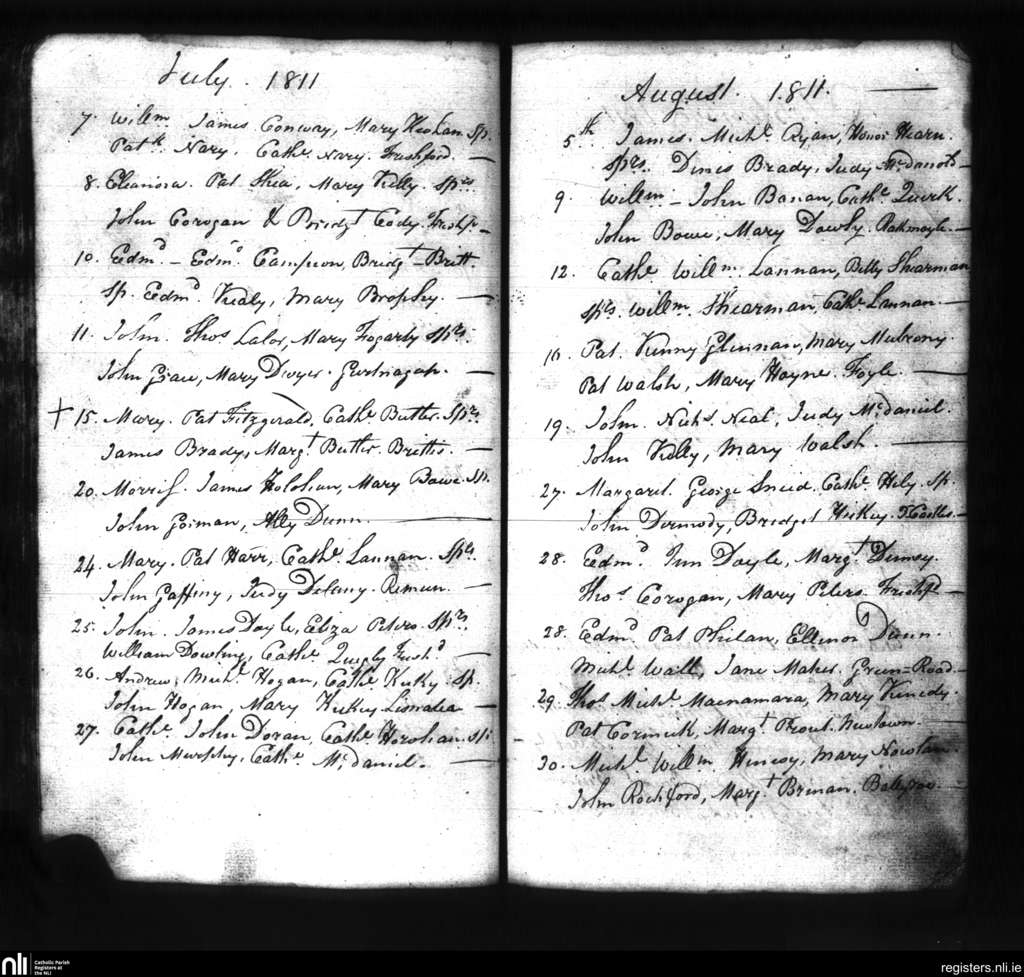 July. 1811
7. Willm James Conway, Mary Keohan Sp.
Patk Nary. Cathe Nary. Freshford. —
8. Eleanora. Pat Shea, Mary Kelly. Sprs
John Corogan & Bridgt Cody. Freshf. —
10. Edmd. – Edmd. Campion, Bridgt – Britt.
Sp. Edmd. Kealy, Mary Brophy. —
11. John. Thos Lalor, Mary Fogarty Sprs.
John Grace, Mary Dwyer. —
+ 15. Mary. Pat Fitzgerald, Cathe Butler. Sprs.
James Brady, Margt Butler. —
20. Morris. James Holohan, Mary Bowe. Sp.
John Gorman, Ally Dunn. —
24. Mary. Pat Harr, Cathe Lannan. Sprs.
John Gaffiny, Judy Delany. —
25. John. James Doyle, Eliza Peters. Sprs.
William Dowling, Cathe Quigly Freshd —
26. Andrew, Michl Hogan, Cathe Sp.
John Hogan, Mary Hickey —
27. Cathe John Doran, Cathe Horohan. Sp:
John Murphy, Cathe McDaniel. —
August. 1811. —
5th James. Michl Ryan, Honor Hearn.
Sprs. Dines Brady, Judy
9. Willm – John Banan, Cathe Quirk.
John Bowe, Mary Dowly. Rathmoyle. —
12. Cathe Willm Lannan, Betty Shearman
Sprs. Willm Shearman, Cathe Lannan. —
16. Pat. Mary Mulrony.
Pat Walsh, Mary Hayne. Foyle. —
19. John. Nichs Neal, Judy McDaniel.
John Kelly, Mary Walsh. —
27. Margaret. George Sneid. Cathe Hely. Sp.
John Dermody, Bridget Hickey. —
28. Edmd. Doyle, Margt Demsy.
Thos Corogan, Mary Peters. Freshfd —
28. Edmd. Pat Phelan, Ellenor Dunn.
Michl Wall, Jane Maher. Green=Road. —
29. Thos Michl Macnamara, Mary Kenedy.
Pat Cormick, Margt Prout. Newtown. —
30. Michl Willm Henesy, Mary Nowlan.
John Rochford, Margt Brenan. —
nli
Catholic Parish
Registers at
the NLI
registers.nli.ie